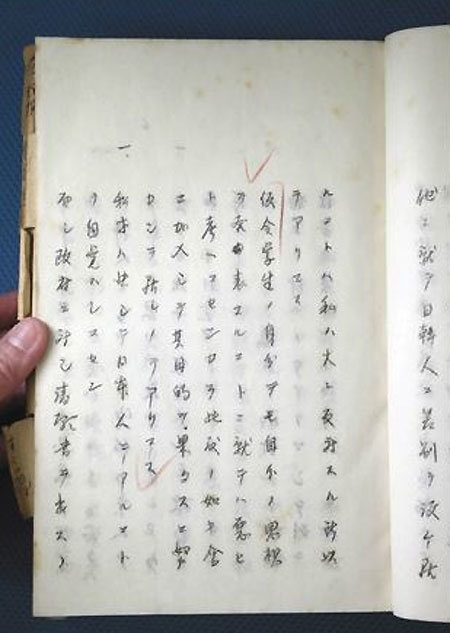 他ニ就テ日韓人ニ差別ヲ設ケ居
ルコトハ私ハ大ニ反対スル所以
テアリマス
仮令学生ノ身分デモ自分ノ思想
ヲ発表スルコトニ就テハ悪ヒ
ト考ヘマセンカラ此度ノ如キ会
ニ加入シテ其目的ヲ果タスニ努
メン
一、
私共ハ決シテ日本人ニアルコト
ヲ自覚ハシマセン
而シ政府ニ対シ請願書ヲ表スノ